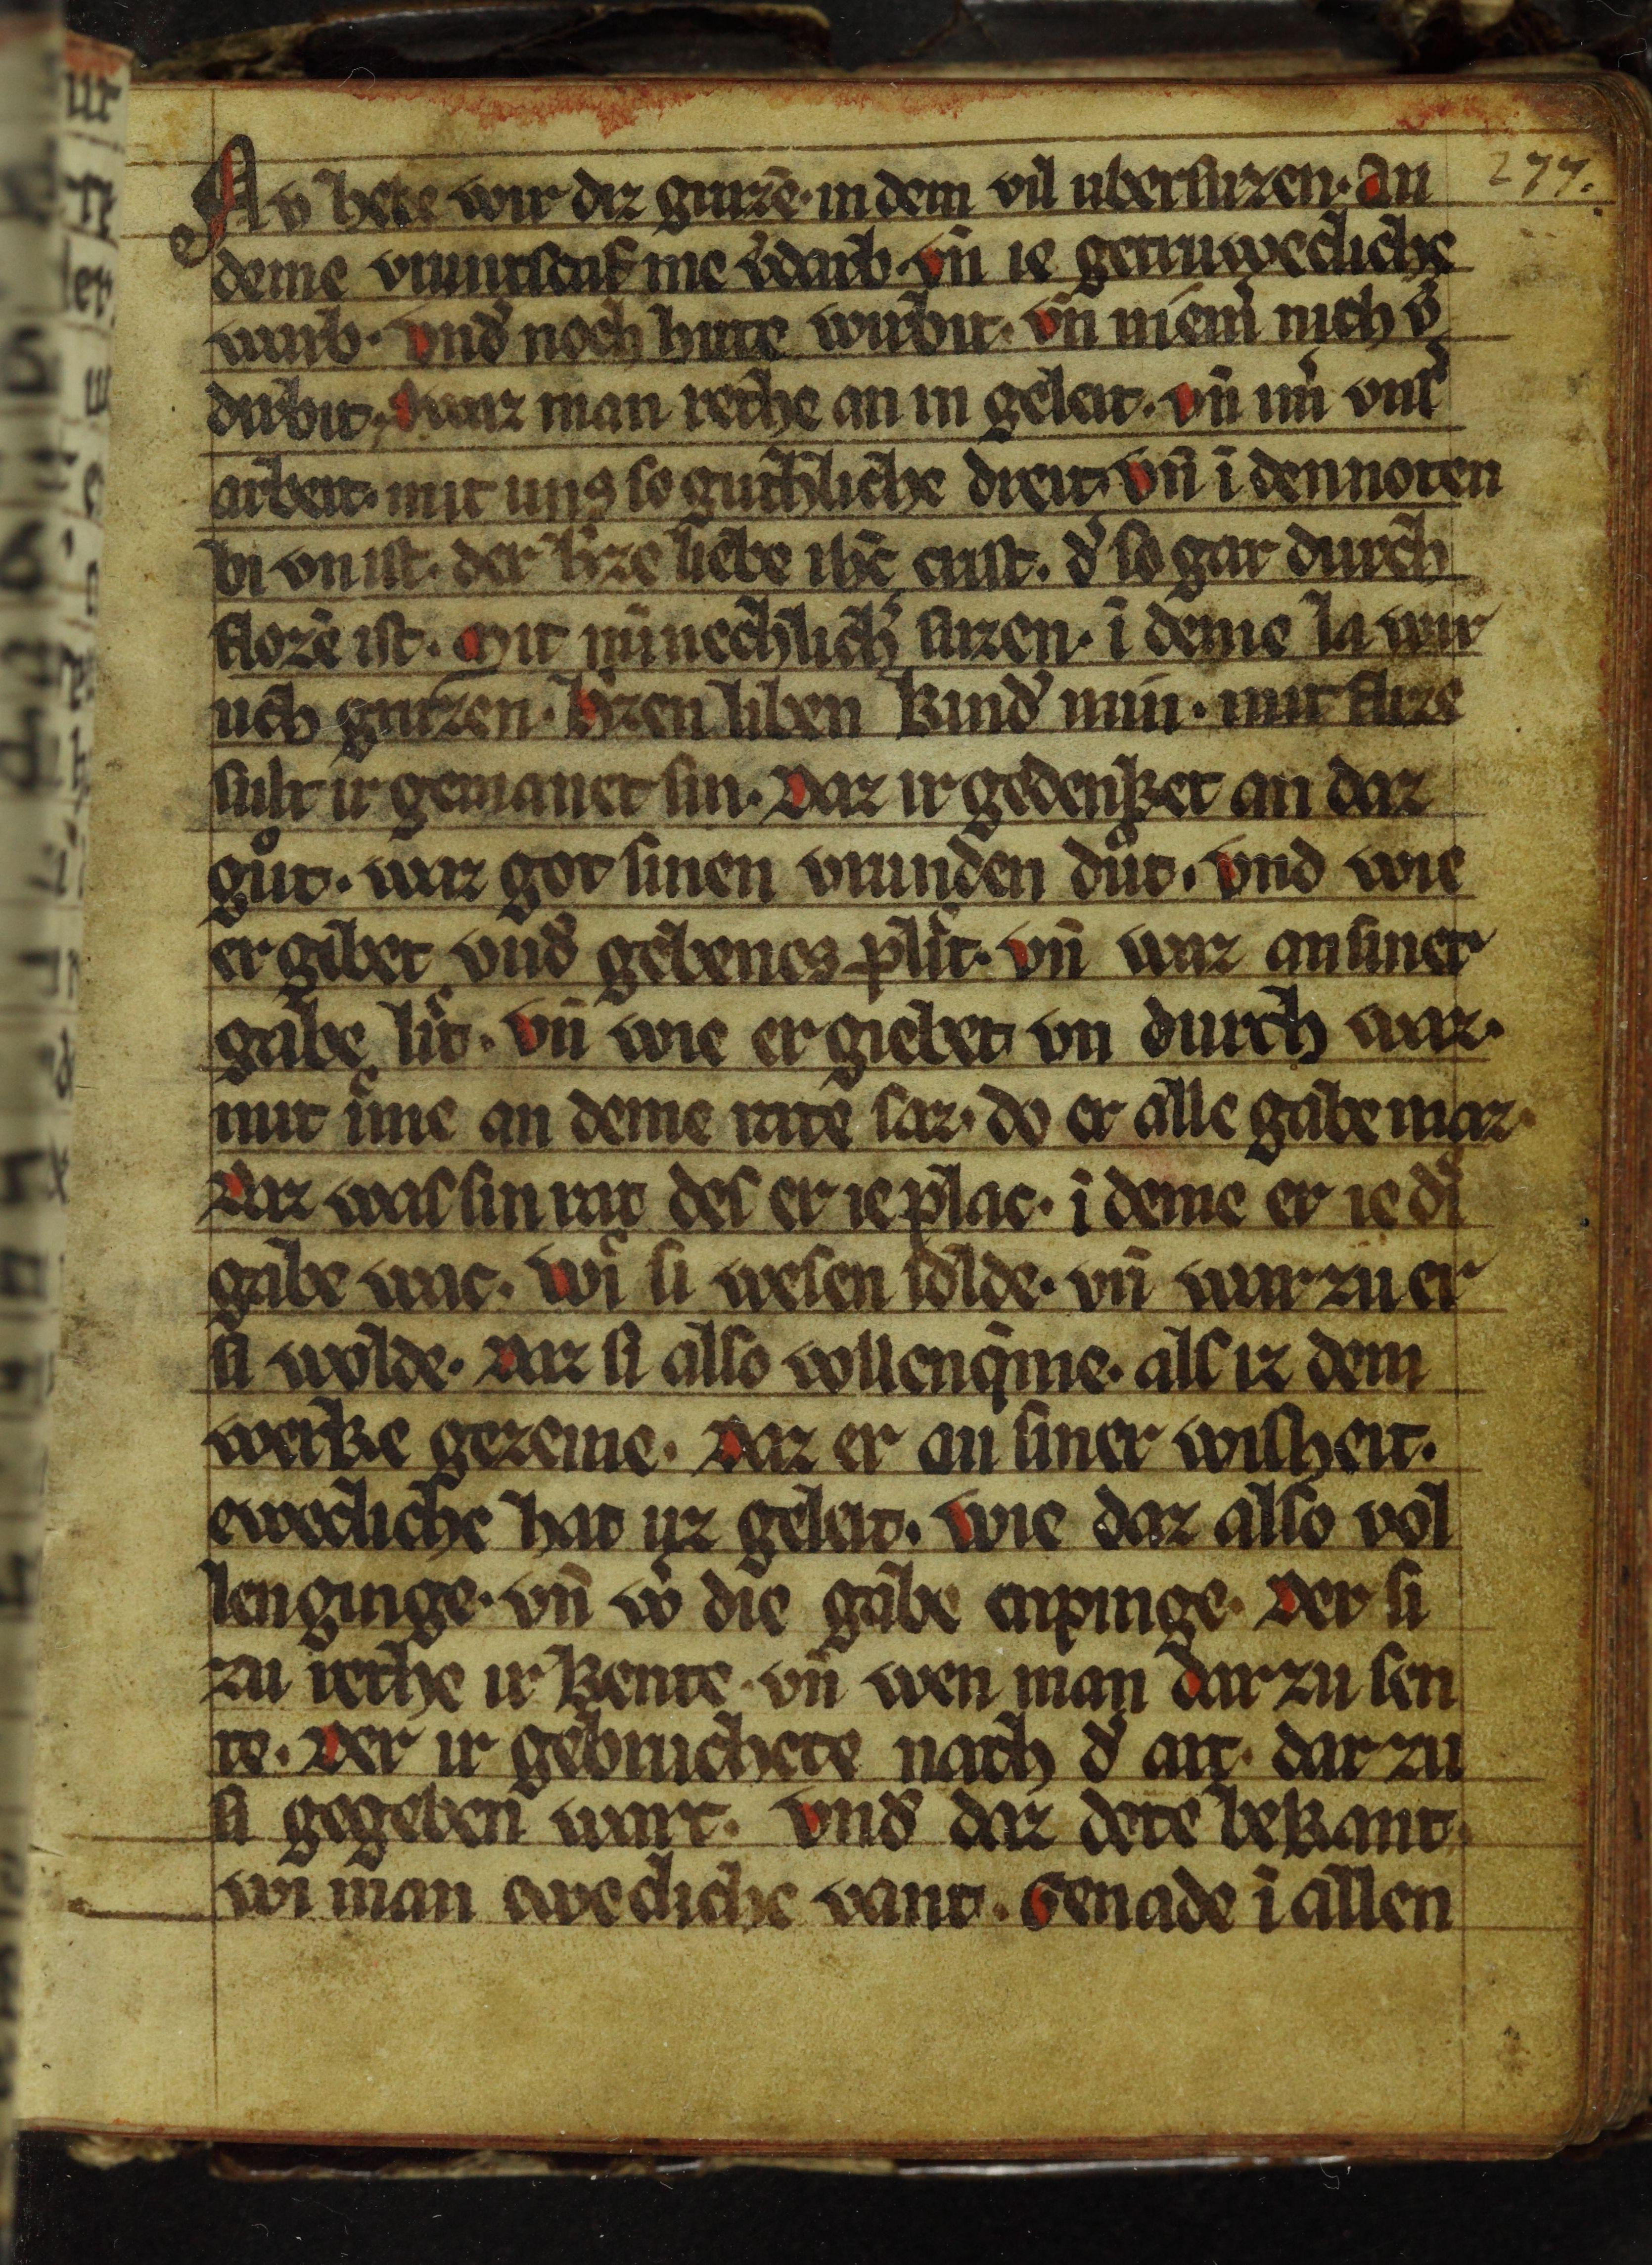 277.
Nv hebe wir diz gruzē· in dem vil ubersuzen· An
deme vruntscaf nie v̓darb· vn̄ ie getruweclichē
warb· vnd̓ noch hute wirbit· vn̄ niem̓ nich v̓
dirbit· Swaz man rethe an in geleit· vn̄ im̓ vns̓
arbeit· mit uns so guthliche dreit· vn̄ ī den noten
bi vn ist· der h̓ze liebe ihc̄ crist· d̓ so gar durch
flozē ist· Mit mīnechlich̓ suzen· ī deme la wir
uch gruzen· h̓zen liben kind̓ min· mit flize
sult ir gemanet sin· Daz ir gedenket an daz
guͦt· waz got sinen vrunden duͦt· vnd wie
er gibet vnd̓ gebenes pliͤt· vn̄ waz an siner
gabe liͤt· vn̄ wie er giebet vn durch waz·
mit ime an deme rate saz· do er alle gabe maz·
Daz was sin rat des er ie plac· ī deme er ie di
gabe wac· Wi si wesen solde· vn̄ war zu er
si wolde· Daz si also vollenq̓me· als iz dem
werke gezeme· Daz er an siner wisheit·
ewecliche hat uz geleit· Wie daz also vol
lenginge· vn̄ w̓ die gabe enpinge· Der si
zu rethe ir kente· vn̄ wen man dar zu sen
te· Der ir gebruchete nach d̓ art· dar zu
si gegeben wart· vnd̓ daz dete bekant·
wi man ewecliche vant· Genade ī allen